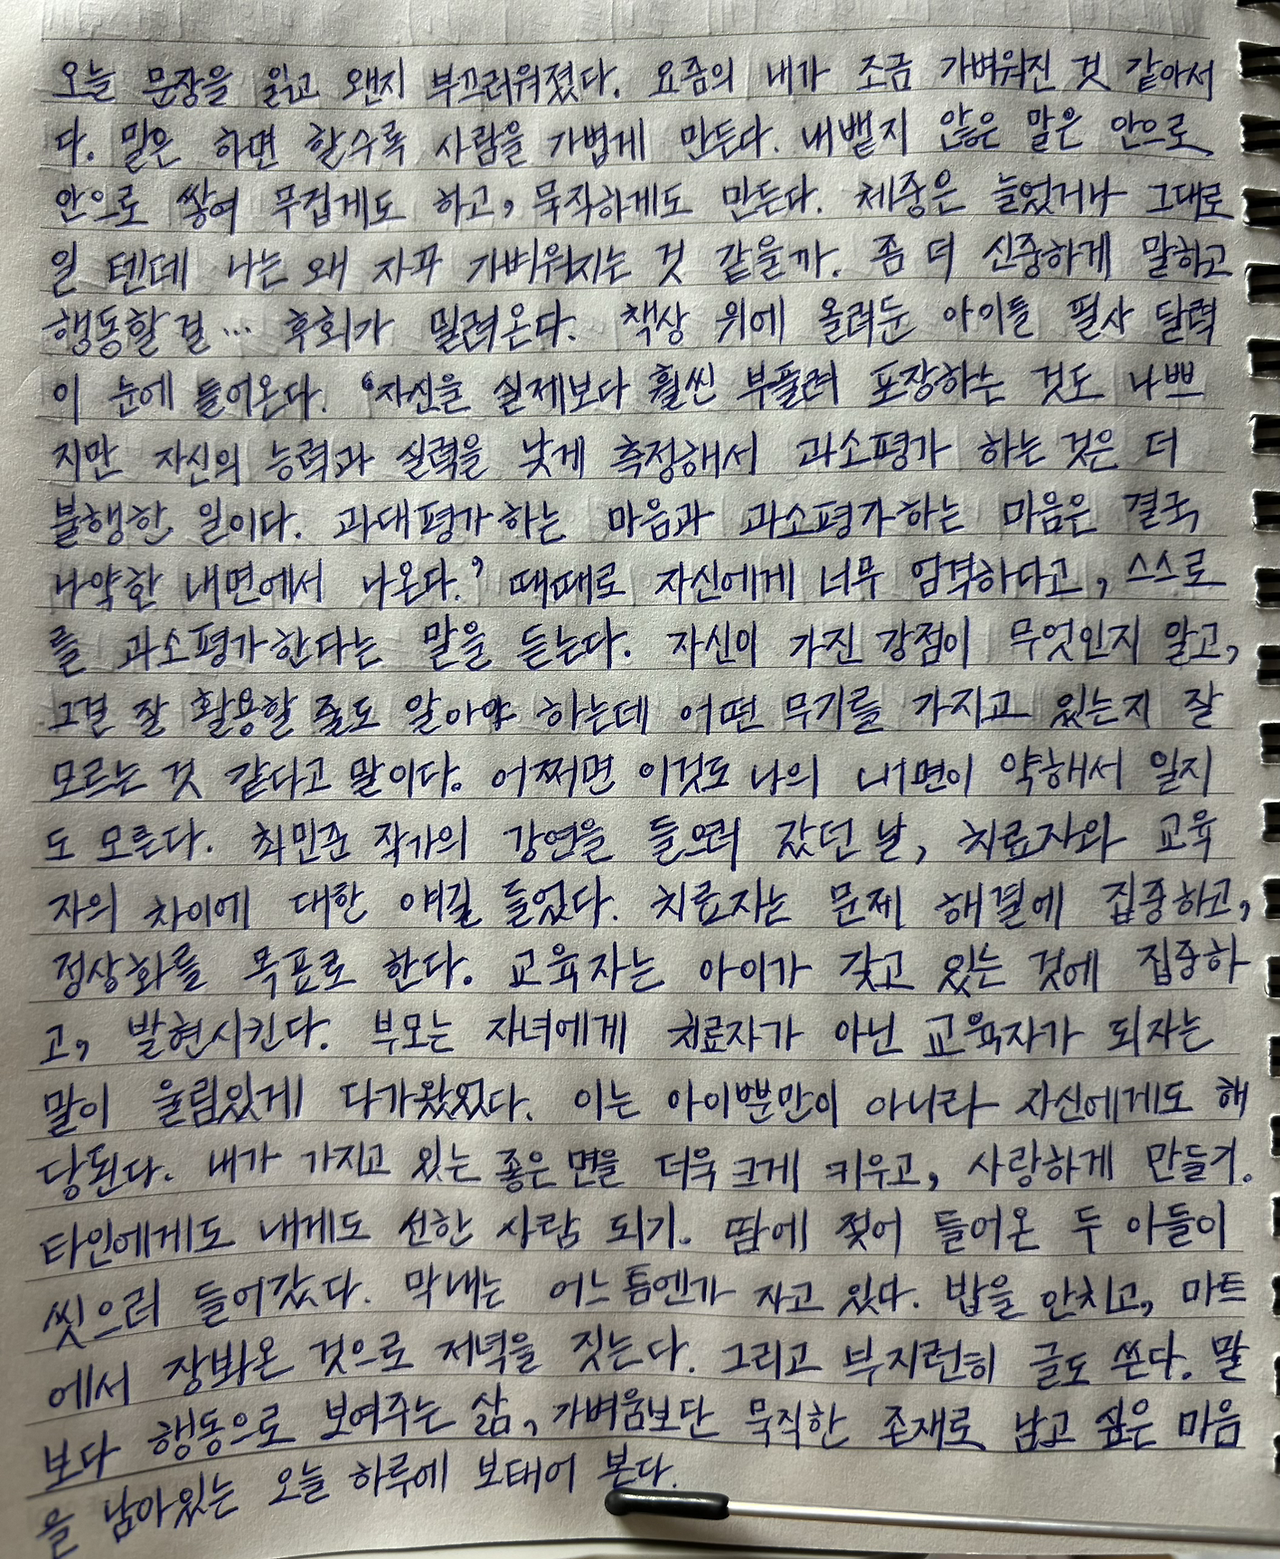 오늘 문장을 읽고 왠지 부끄러워졌다. 요즘의 내가 조금 가벼워진 것 같아서
다. 말은 하면 할수록 사람을 가볍게 만든다. 내뱉지 않은 말은 안으로
안으로 쌓여 무겁게도 하고, 묵직하게도 만든다. 체중은 늘었거나 그대로
일 텐데 나는 왜 자꾸 가벼워지는 것 같을까. 좀 더 신중하게 말하고
행동할 걸… 후회가 밀려온다. 책상 위에 올려둔 아이들 필사 달력
이 눈에 들어온다. '자신을 실제보다 훨씬 부풀려 포장하는 것도 나쁘
지만 자신의 능력과 실력을 낮게 측정해서 과소평가 하는 것은 더
불행한 일이다. 과대평가하는 마음과 과소평가하는 마음은 결국
나약한 내면에서 나온다.' 때때로 자신에게 너무 엄격하다고, 스스로
를 과소평가한다는 말을 듣는다. 자신이 가진 강점이 무엇인지 알고,
그걸 잘 활용할 줄도 알아야 하는데 어떤 무기를 가지고 있는지 잘
모르는 것 같다고 말이다. 어쩌면 이것도 나의 내면이 약해서 일지
도 모른다. 최민준 작가의 강연을 들으러 갔던 날, 치료자와 교육
자의 차이에 대한 얘길 들었다. 치료자는 문제 해결에 집중하고,
정상화를 목표로 한다. 교육자는 아이가 갖고 있는 것에 집중하
고, 발현시킨다. 부모는 자녀에게 치료자가 아닌 교육자가 되자는
말이 울림있게 다가왔었다. 이는 아이뿐만이 아니라 자신에게도 해
당된다. 내가 가지고 있는 좋은 면을 더욱 크게 키우고, 사랑하게 만들기.
타인에게도 내게도 선한 사람 되기. 땀에 젖어 들어온 두 아들이
씻으러 들어갔다. 막내는 어느 틈엔가 자고 있다. 밥을 안치고, 마트
에서 장봐온 것으로 저녁을 짓는다. 그리고 부지런히 글도 쓴다. 말
보다 행동으로 보여주는 삶, 가벼움보단 묵직한 존재로 남고 싶은 마음
을 남아있는 오늘 하루에 보태어 본다.